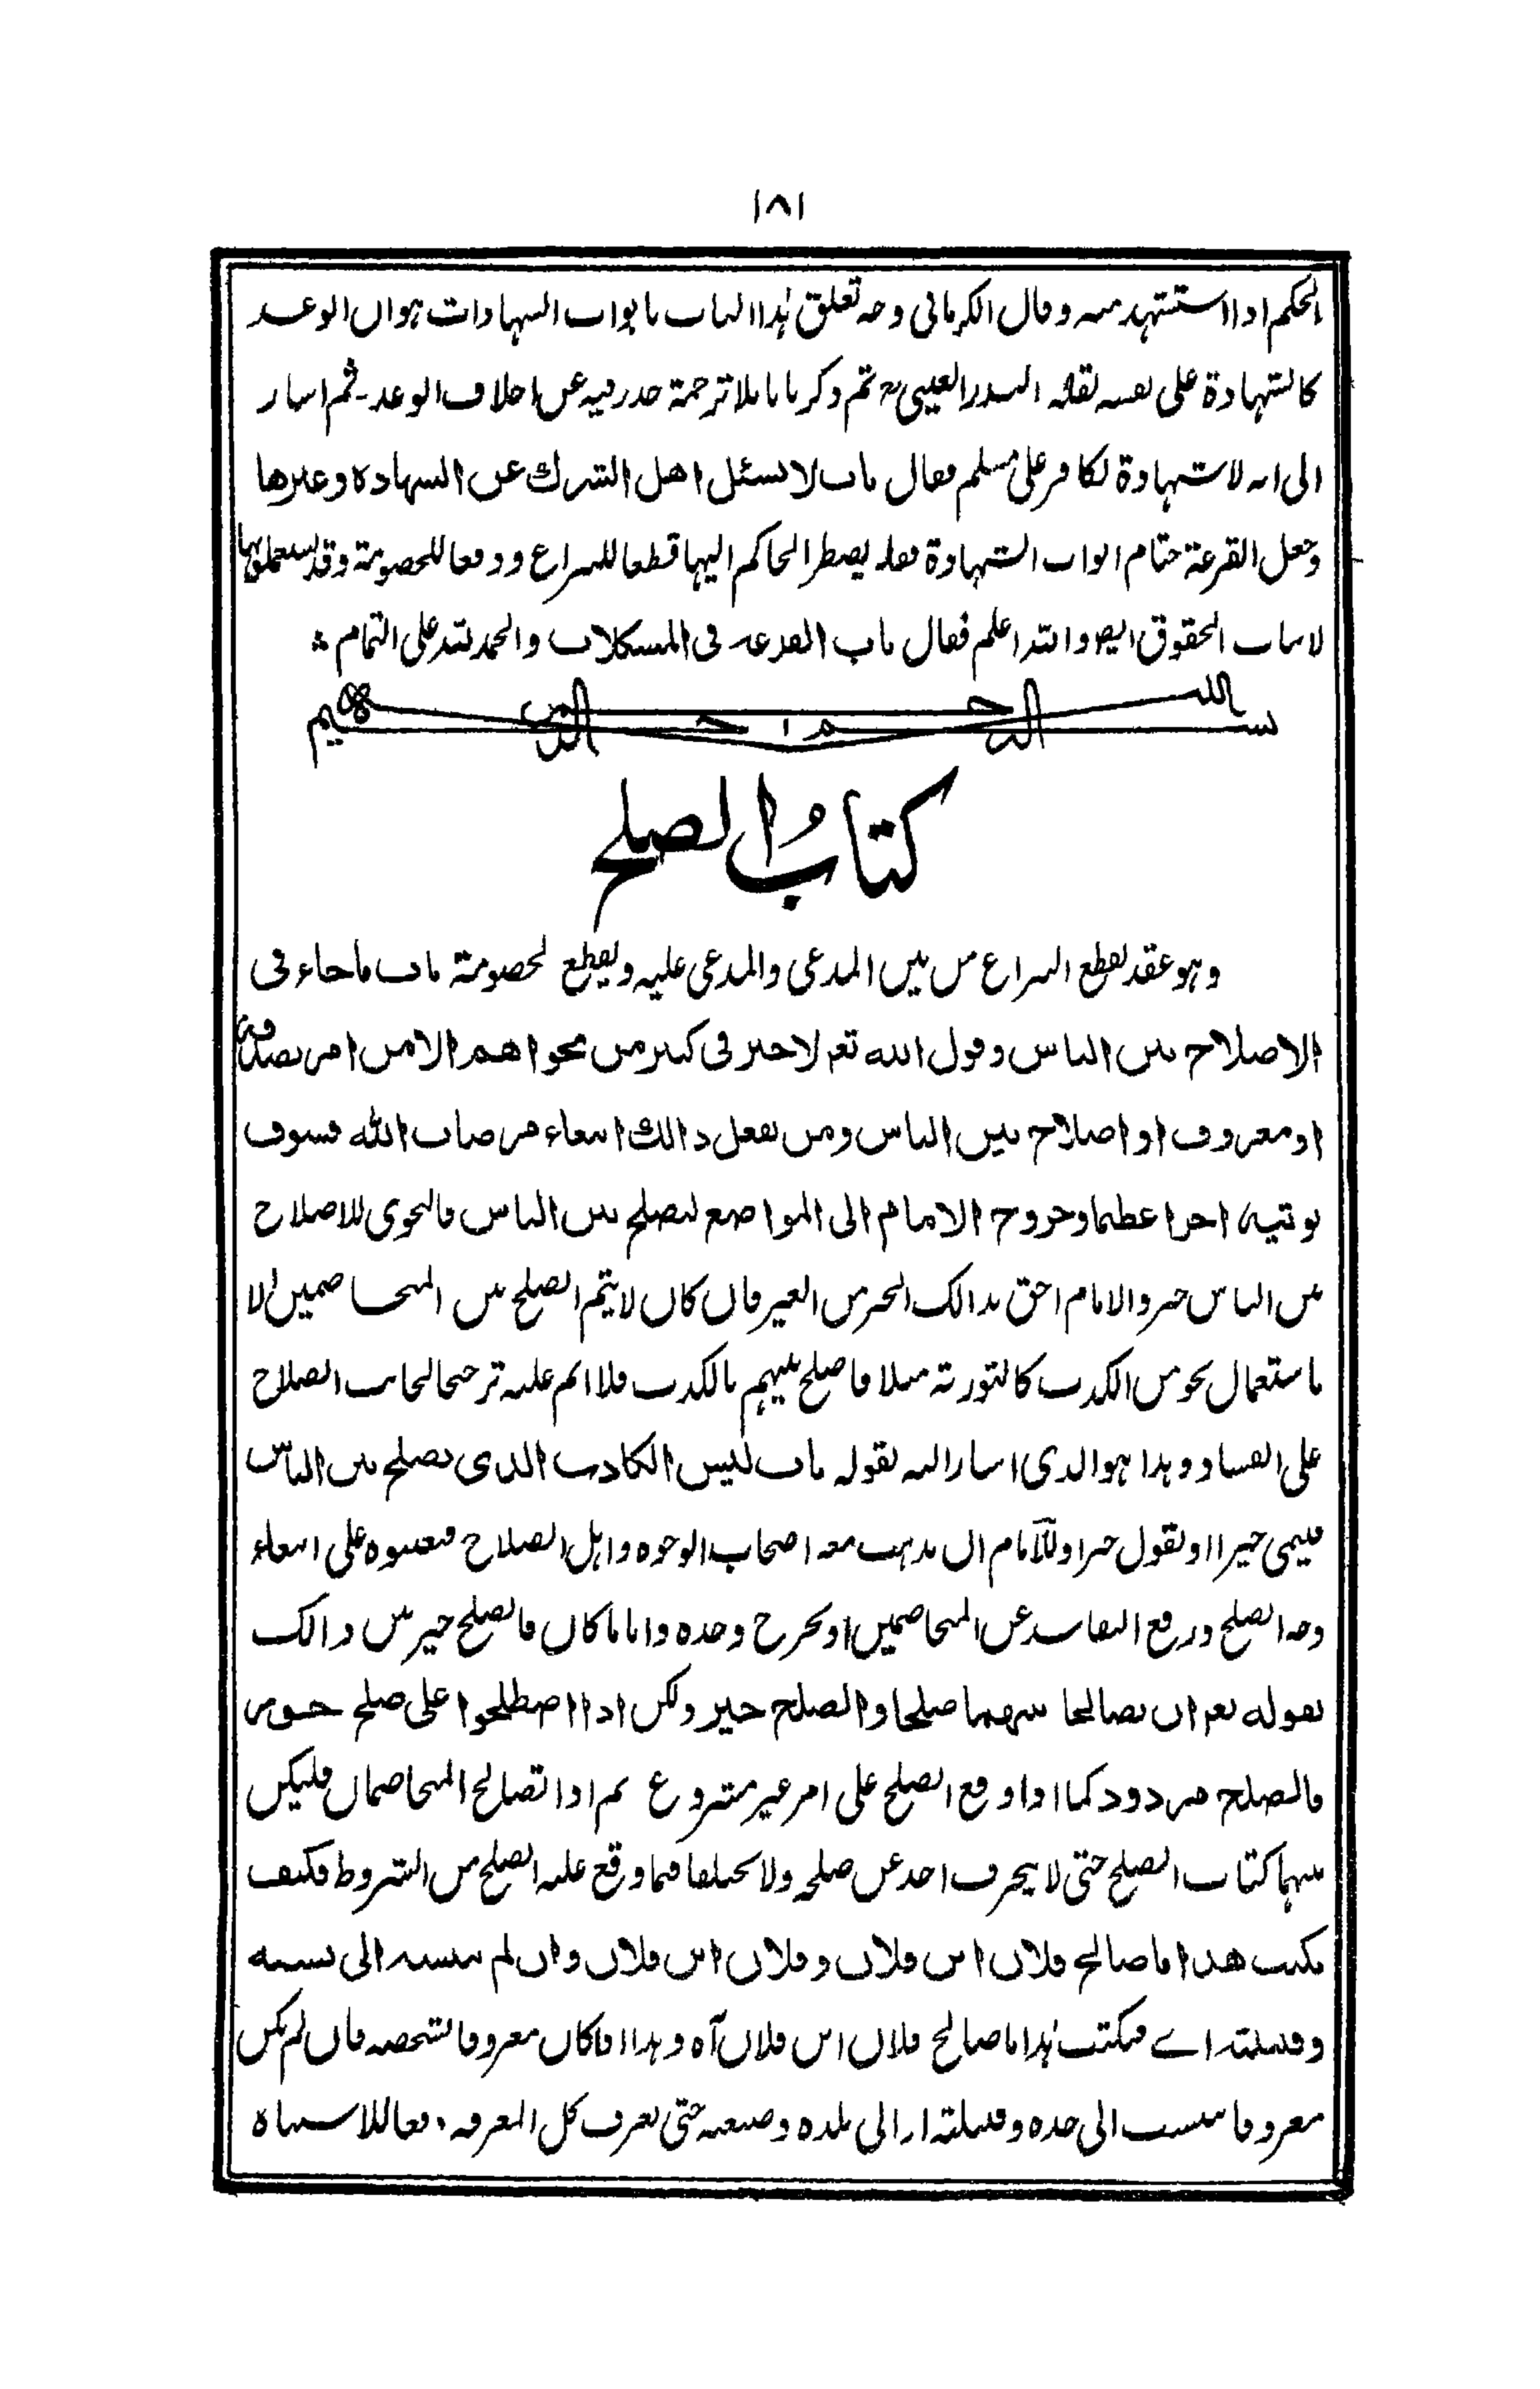 ١٨١
الحكم اذا استشهد منه وقال الكرمانى وجه تعلق هذا الباب بابواب الشهادات هو ان الوعد
كالشهادة على نفسه نقله البدر العينى ثم ذكر بابا بلا ترجمة حذر فيه عن اخلاف الوعد۔ ثم اشار
الى انه لا شهادة لكافر على مسلم فقال باب لا يسئل اهل الشرك عن الشهادة وغيرها
وجعل القرعة ختام ابواب الشهادة فقد يضطر الحاكم اليها قطعا للنزاع ودفعا للخصومة وقد يستعملونها
لاثبات الحقوق ايضا والله اعلم فقال باب القرعة فى المشكلات والحمد لله على التمام
بسم الله الرحمن الرحيم
كتابُ الصلح
وهو عقد لقطع النزاع من بين المدعى والمدعى عليه ويقطع لخصومة باب ما جاء فى
الاصلاح بين الناس وقول الله تع لا خير فى كثير من نجواهم الا من امر بصدقة
او معروف او اصلاح بين الناس ومن يفعل ذالك ابتغاء مرضات الله فسوف
نوتيه اجرا عظيما وخروج الامام الى المواضع ليصلح بين الناس فالنجوى للاصلاح
بين الناس خير والامام احق بذالك الخير من الغير فان كان لا يتم الصلح بين المتخاصمين الا
باستعمال نحو من الكذب كالتورية مثلا فاصلح بينهم بالكذب فلا اثم عليه ترجيحا لجانب الصلاح
على الفساد وهذا هو الذى اشار اليه بقوله باب ليس الكاذب الذى يصلح بين الناس
فينمى خيرا او يقول خيرا وللامام ان يذهب معه اصحاب الوجوه واهل الصلاح فيعينوه على ابتغاء
وجه الصلح ورفع التفاسد عن المتخاصمين او يخرج وحده واياما كان فالصلح خير من ذالك
بقوله تع ان يصالحا بينهما صلحا والصلح خير ولكن اذا اصطلحوا على صلح جور
فالصلح مردود كما اذا وقع الصلح على امر غير مشروع ثم اذا تصالح المتخاصمان فليكن
بينهما كتاب الصلح حتى لا ينحرف احد عن صلحه ولا يختلفا فيما وقع عليه الصلح من الشروط فكيف
يكتب هذا ما صالح فلان ابن فلان وفلان ابن فلان وان لم ينسبه الى نسبه
وقبيلته اے فيكتب هذا ما صالح فلان ابن فلان آه وهذا اذا كان معروفا بشخصه فان لم يكن
معروفا ينسب الى جده وقبيلته او الى بلده وصنعته حتى يعرف كل المعرفة دفعا للاشتباه